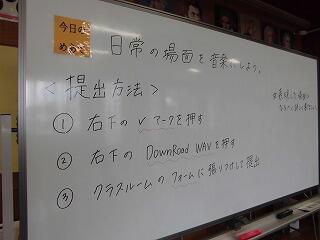 今日の
めあて
日常の場面を音楽にしよう。
<提出方法>
① 右下の∨マークを押す
② 右下の DownRoad WAVを押す
③ クラスルームのフォームに張りつけして提出